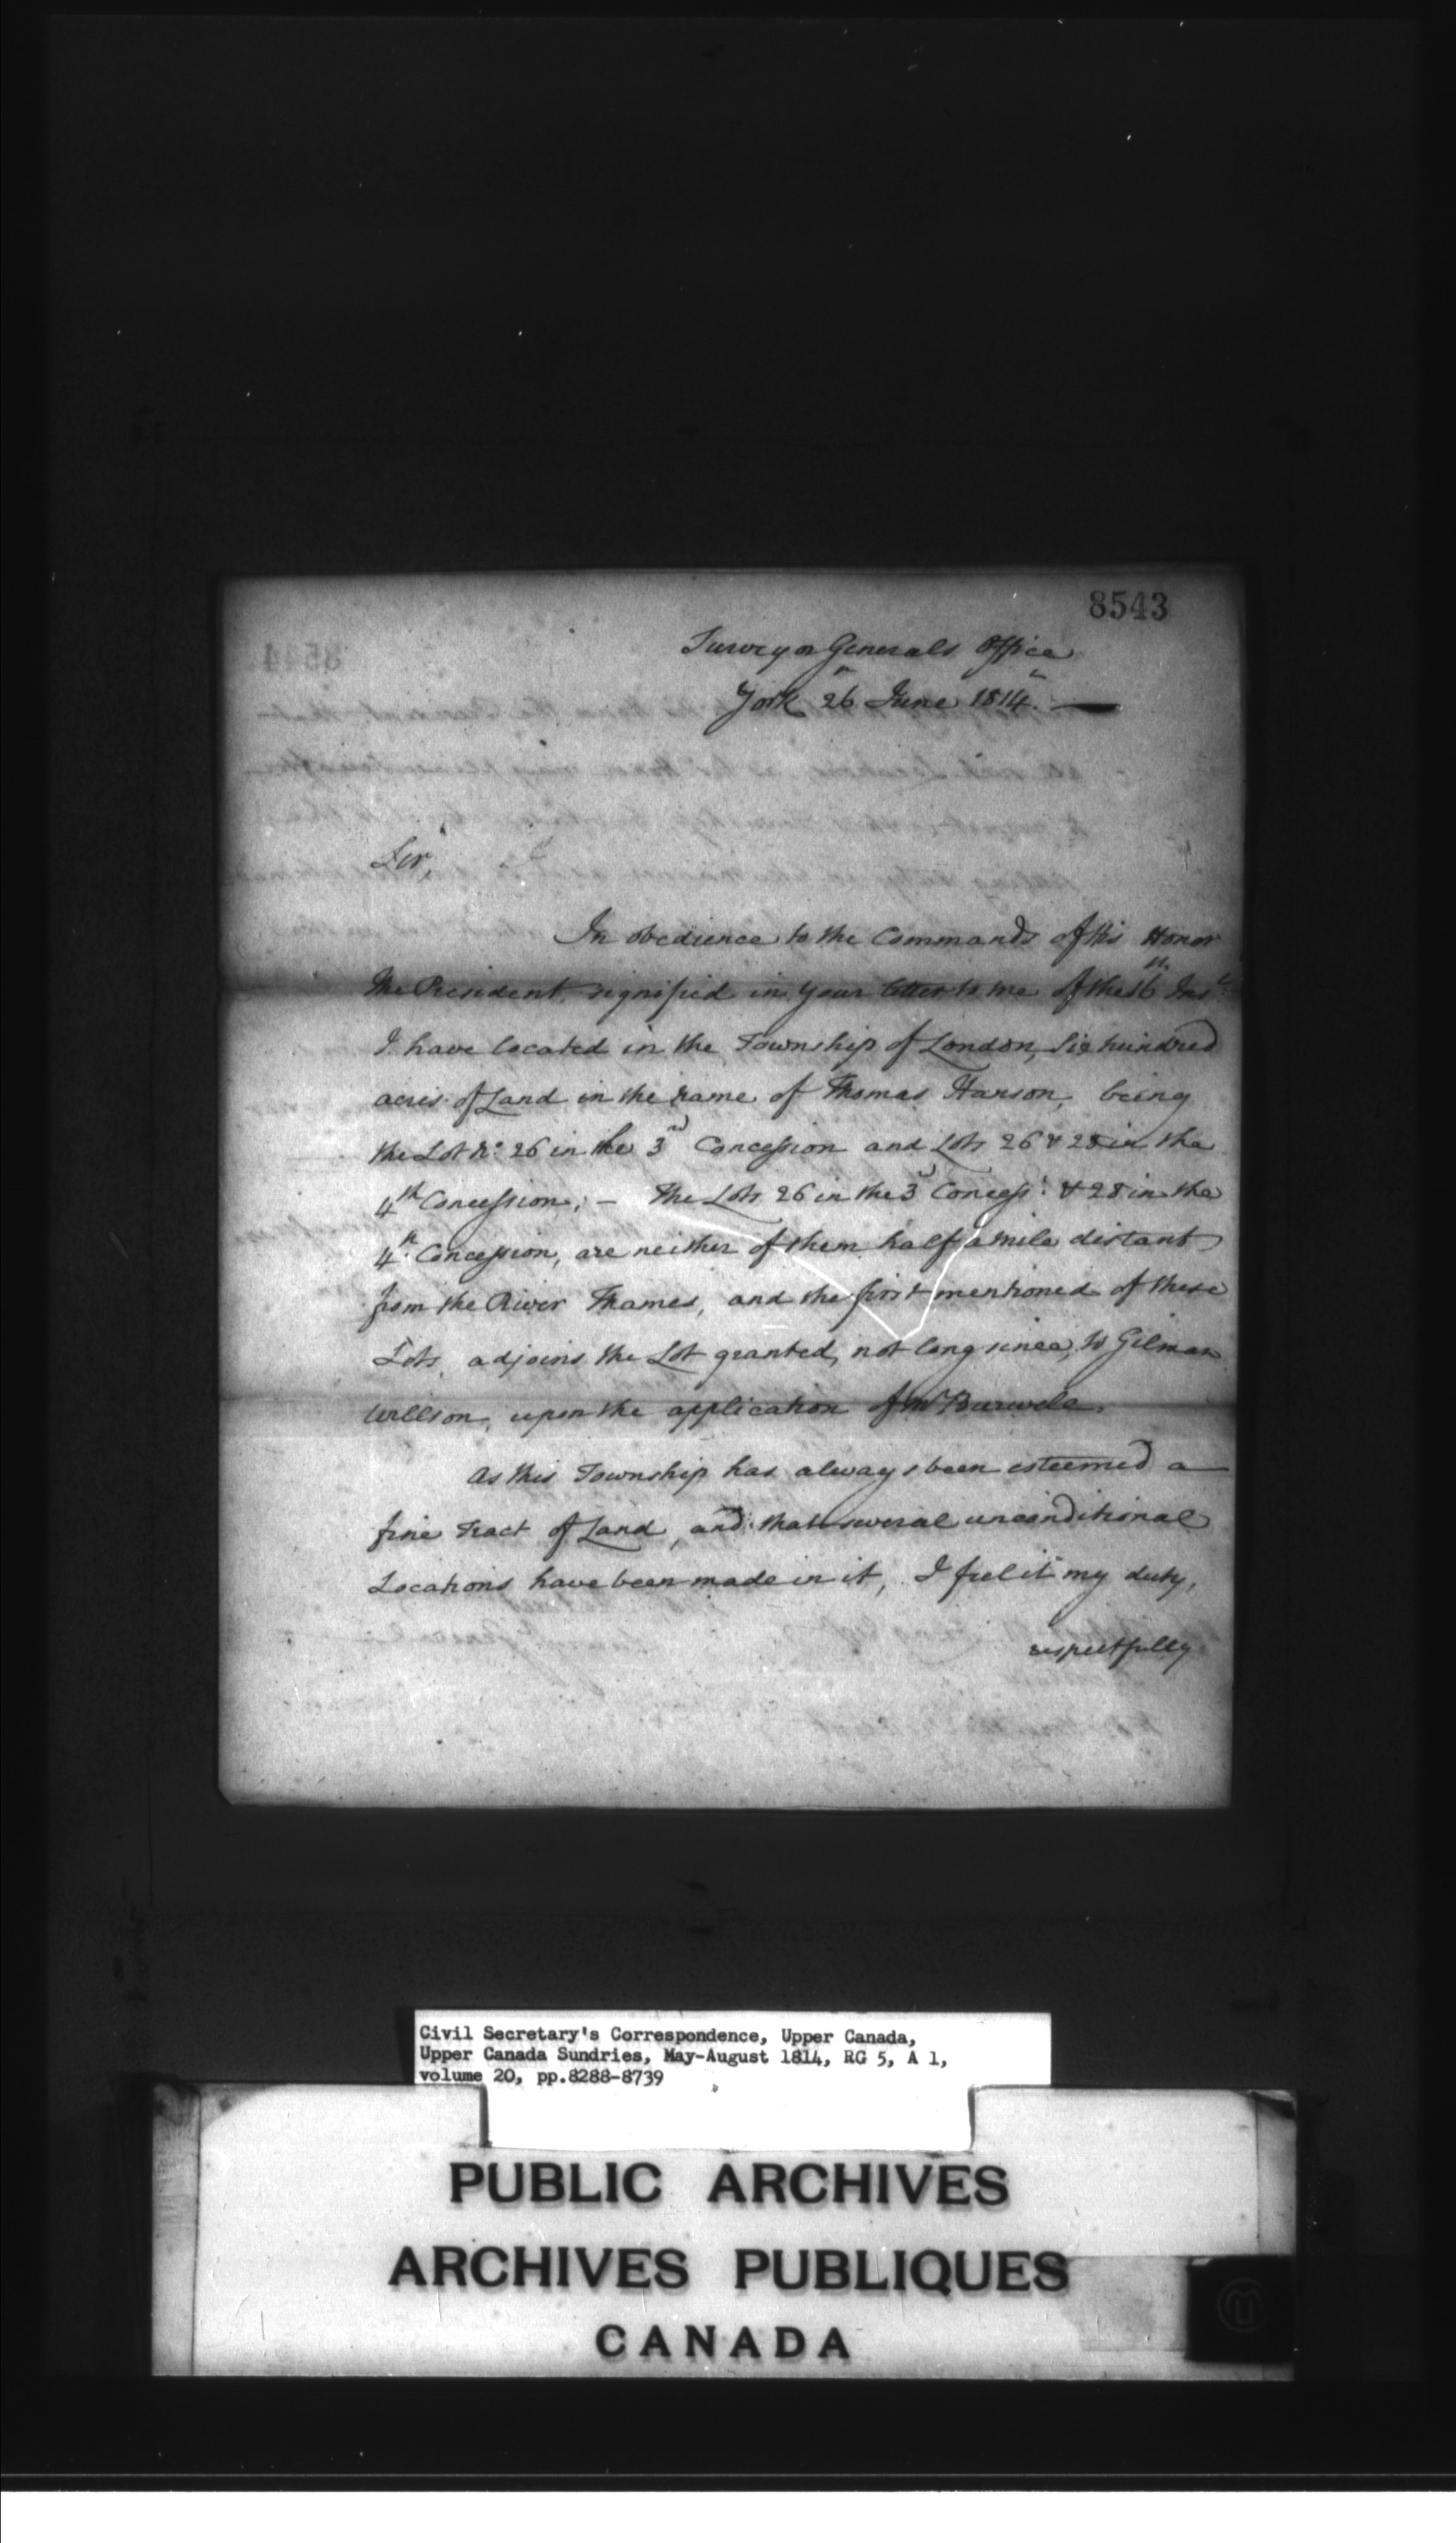 8543
Surveyor Generals Office
York 26 June 1814.
Sir,
In obedience to the Commands of His Honor
the President, signified in your letter to me of the 16th Inst.
I have located in the Township of London, Six hundred
acres of Land in the name of Thomas Hanson, being
the Lot No. 26 in the 3rd Concession and Lots 26 & 28 in the
4th Concession; - The Lots 26 in the 3d Concess: & 28 in the
4th Concession, are neither of them half a mile distant
from the River Thames, and the first mentioned of these
Lots, adjoins the Lot granted, not long since, to Gilman
Willson, upon the application of Mr Burwele.
As this Township has always been esteemed a
fine Tract of Land, and that several unconditional
Locations have been made in it, I feel it my duty,
respectfully
Civil Secretary's Correspondence, Upper Canada,
Upper Canada Sundries, May-August 1814, RG 5, A 1,
volume 20, pp.8288-8739
PUBLIC ARCHIVES
ARCHIVES PUBLIQUES
CANADA